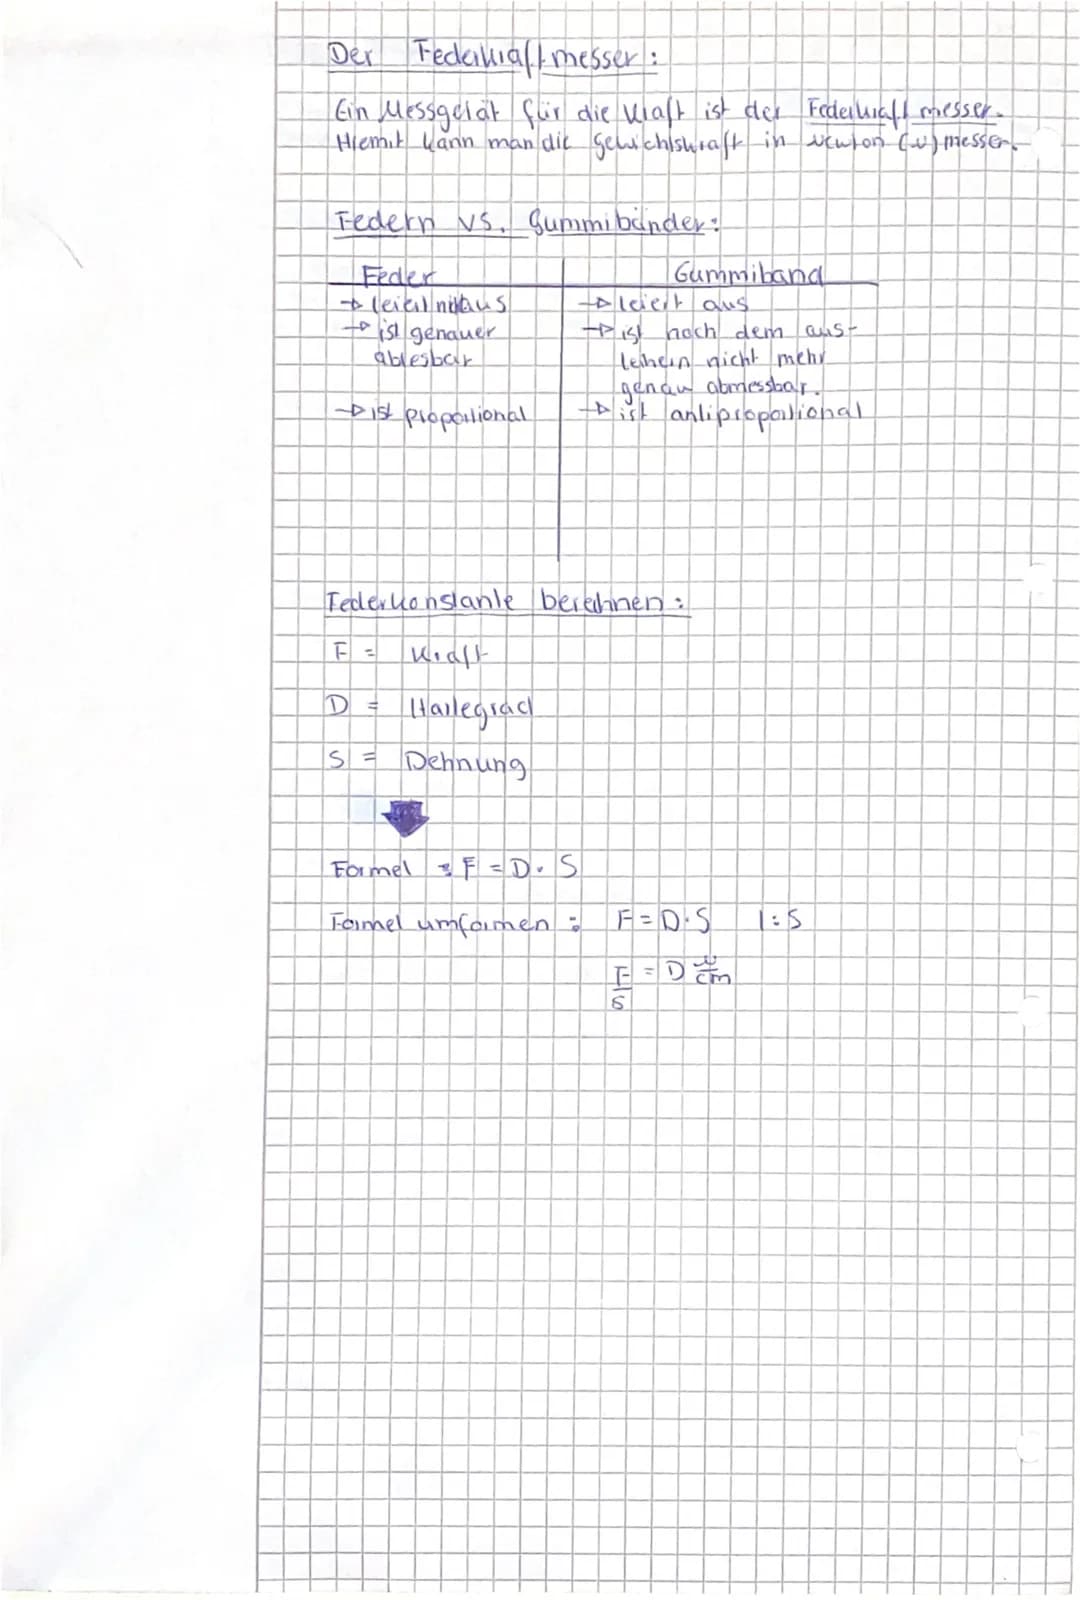 Der Federkraftmesser:
Ein Messgerät für die Kraft ist der Federkraftmesser.
Hiemit kann man die Gewichtskraft in Newton (N) messen.
Federn vs. Gummibänder:
Feder Gummiband
→ leiert nicht aus → leiert aus
→ ist genauer → ist nach dem aus-
ablesbar leihern nicht mehr
genau abmessbar.
→ ist proportional → ist antiproportional
Federkonstante berechnen:
F = Kraft
D = Härtegrad
S = Dehnung
Formel : F = D · S
Formel umformen : F = D · S | : S
F/S = D N/cm